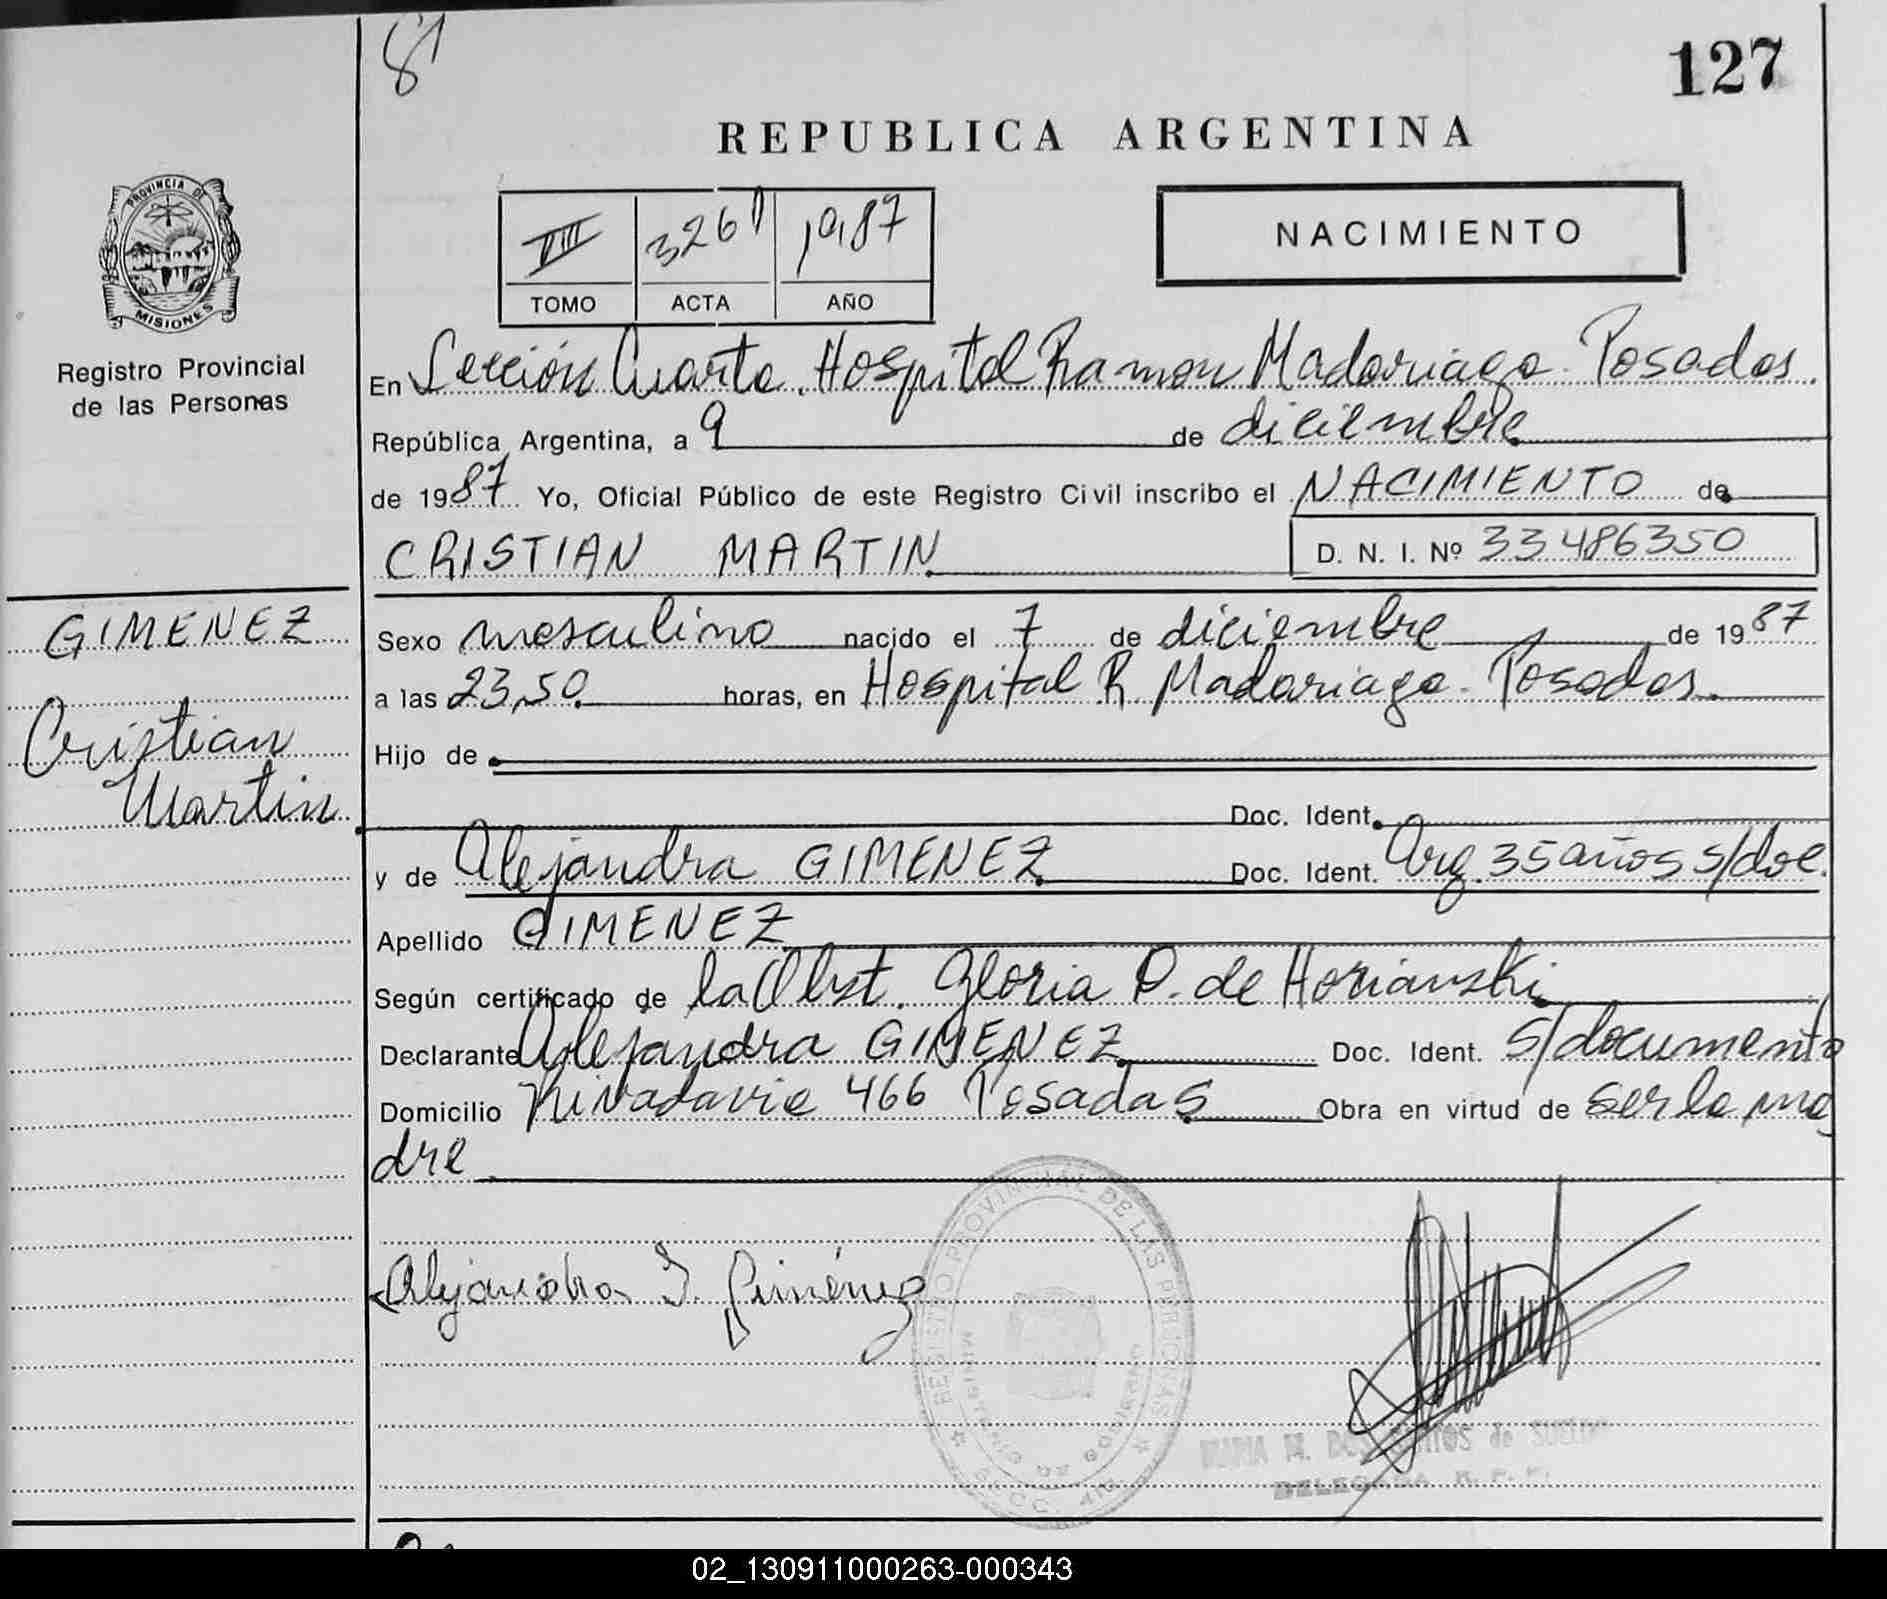 127
REPUBLICA ARGENTINA
PROVINCIA DE
MISIONES
Registro Provincial
de las Personas
VIII 3261 1987
TOMO ACTA AÑO
NACIMIENTO
En Sección Cuarta. Hospital Ramon Madariaga. Posadas.
República Argentina, a 9 de diciembre
de 1987 Yo, Oficial Público de este Registro Civil inscribo el NACIMIENTO de
CRISTIAN MARTIN D. N. I. Nº 33486350
GIMENEZ
Cristian
Martin
Sexo masculino nacido el 7 de diciembre de 1987
a las 23,50 horas, en Hospital R. Madariaga. Posadas.
Hijo de
Doc. Ident.
y de Alejandra GIMENEZ Doc. Ident. Arg. 35 años s/doc.
Apellido GIMENEZ
Según certificado de la Obst. Gloria P. de Horianski
Declarante Alejandra GIMENEZ Doc. Ident. s/documento
Domicilio Rivadavia 466 Posadas Obra en virtud de ser la ma
dre
Alejandra G. Giménez
REGISTRO PROVINCIAL DE LAS PERSONAS
MINISTERIO DE GOBIERNO
SECC. 4ta.
MARIA M. DOS SANTOS de
DELEGADA R. P. P.
02_130911000263-000343